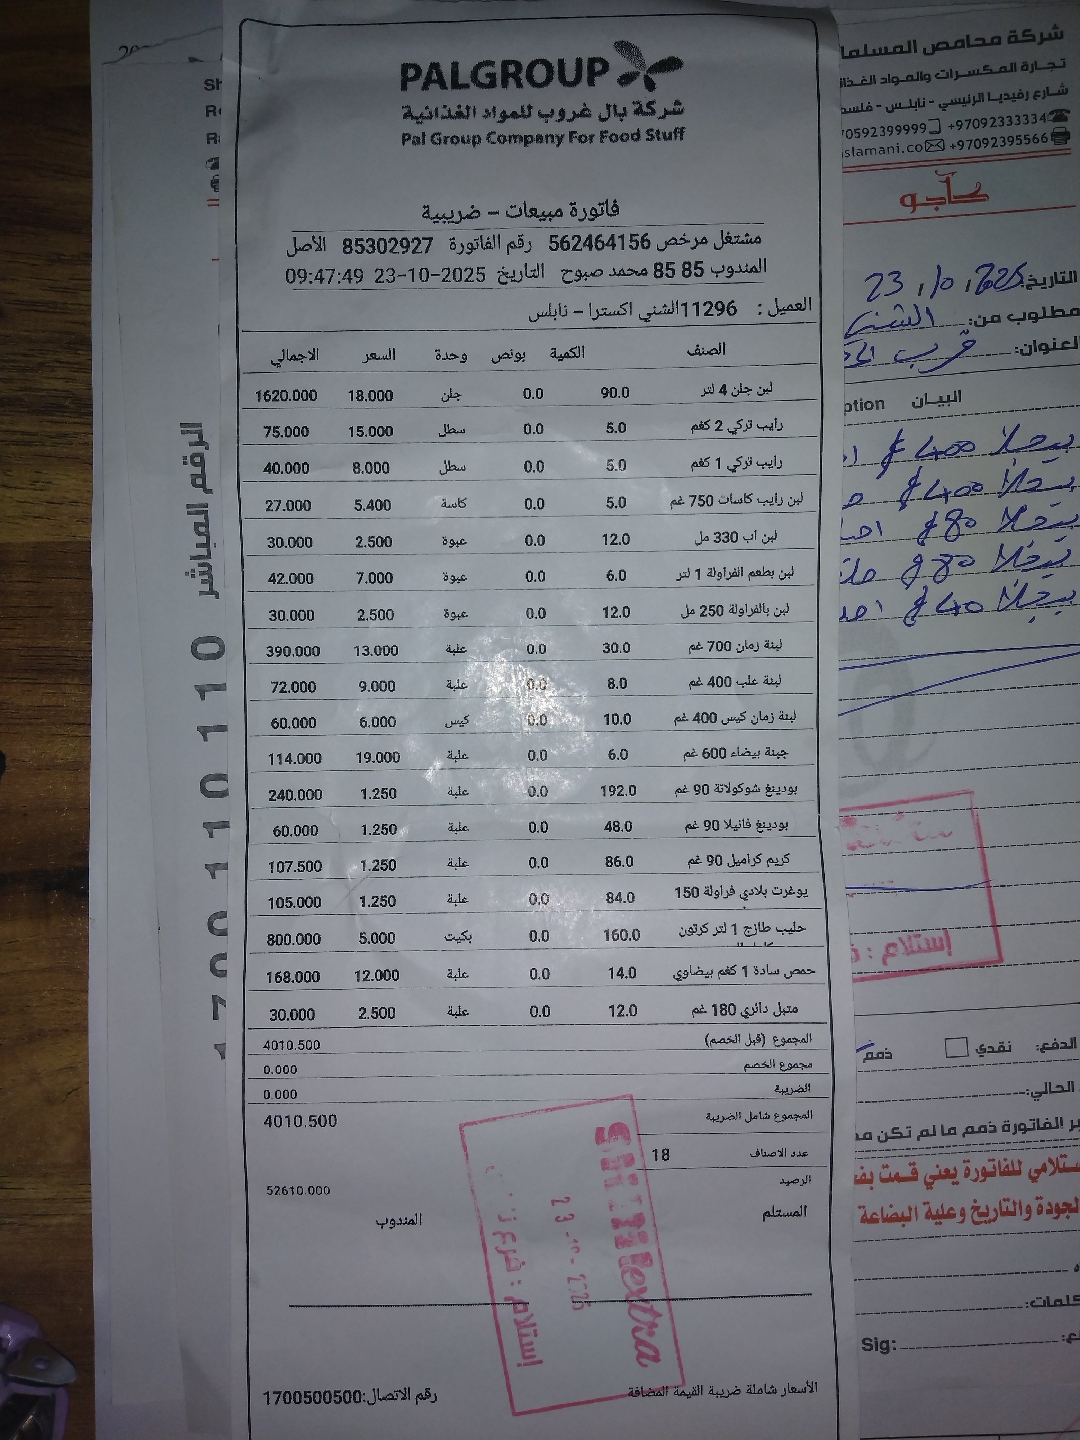 PALGROUP
شركة بال غروب للمواد الغذائية
Pal Group Company For Food Stuff
فاتورة مبيعات – ضريبية
مشتغل مرخص 562464156 رقم الفاتورة 85302927 الأصل
المندوب 85 85 محمد صبوح التاريخ 2025-10-23 09:47:49
العميل : 11296الشني اكسترا – نابلس
الصنف الكمية بونص وحدة السعر الاجمالي
لبن جلن 4 لتر 90.0 0.0 جلن 18.000 1620.000
رايب تركي 2 كغم 5.0 0.0 سطل 15.000 75.000
رايب تركي 1 كغم 5.0 0.0 سطل 8.000 40.000
لبن رايب كاسات 750 غم 5.0 0.0 كاسة 5.400 27.000
لبن اب 330 مل 12.0 0.0 عبوة 2.500 30.000
لبن بطعم الفراولة 1 لتر 6.0 0.0 عبوة 7.000 42.000
لبن بالفراولة 250 مل 12.0 0.0 عبوة 2.500 30.000
لبنة زمان 700 غم 30.0 0.0 علبة 13.000 390.000
لبنة علب 400 غم 8.0 0.0 علبة 9.000 72.000
لبنة زمان كيس 400 غم 10.0 0.0 كيس 6.000 60.000
جبنة بيضاء 600 غم 6.0 0.0 علبة 19.000 114.000
بودينغ شوكولاتة 90 غم 192.0 0.0 علبة 1.250 240.000
بودينغ فانيلا 90 غم 48.0 0.0 علبة 1.250 60.000
كريم كراميل 90 غم 86.0 0.0 علبة 1.250 107.500
يوغرت بلادي فراولة 150 84.0 0.0 علبة 1.250 105.000
حليب طازج 1 لتر كرتون 160.0 0.0 بكيت 5.000 800.000
حمص سادة 1 كغم بيضاوي 14.0 0.0 علبة 12.000 168.000
متبل دائري 180 غم 12.0 0.0 علبة 2.500 30.000
المجموع (قبل الخصم) 4010.500
مجموع الخصم 0.000
الضريبة 0.000
المجموع شامل الضريبة 4010.500
عدد الاصناف 18
الرصيد 52610.000
المستلم المندوب
extra
إستلام : فرع
الأسعار شاملة ضريبة القيمة المضافة
رقم الاتصال:1700500500
الرقم المباشر
شركة محامص
تجارة المكسرات والمواد
شارع رفيديا الرئيسي - نابلس -
0592399999 +97092333334
slamani.co +97092395566
التاريخ: 23
مطلوب من:
قرب
البيان ption
400
400
80
80
40
إستلام :
الدفع: نقدي ذمم
الحالي:
الفاتورة ذمم ما لم تكن
للفاتورة يعني قمت
والتاريخ وعلبة البضاعة
Sig: